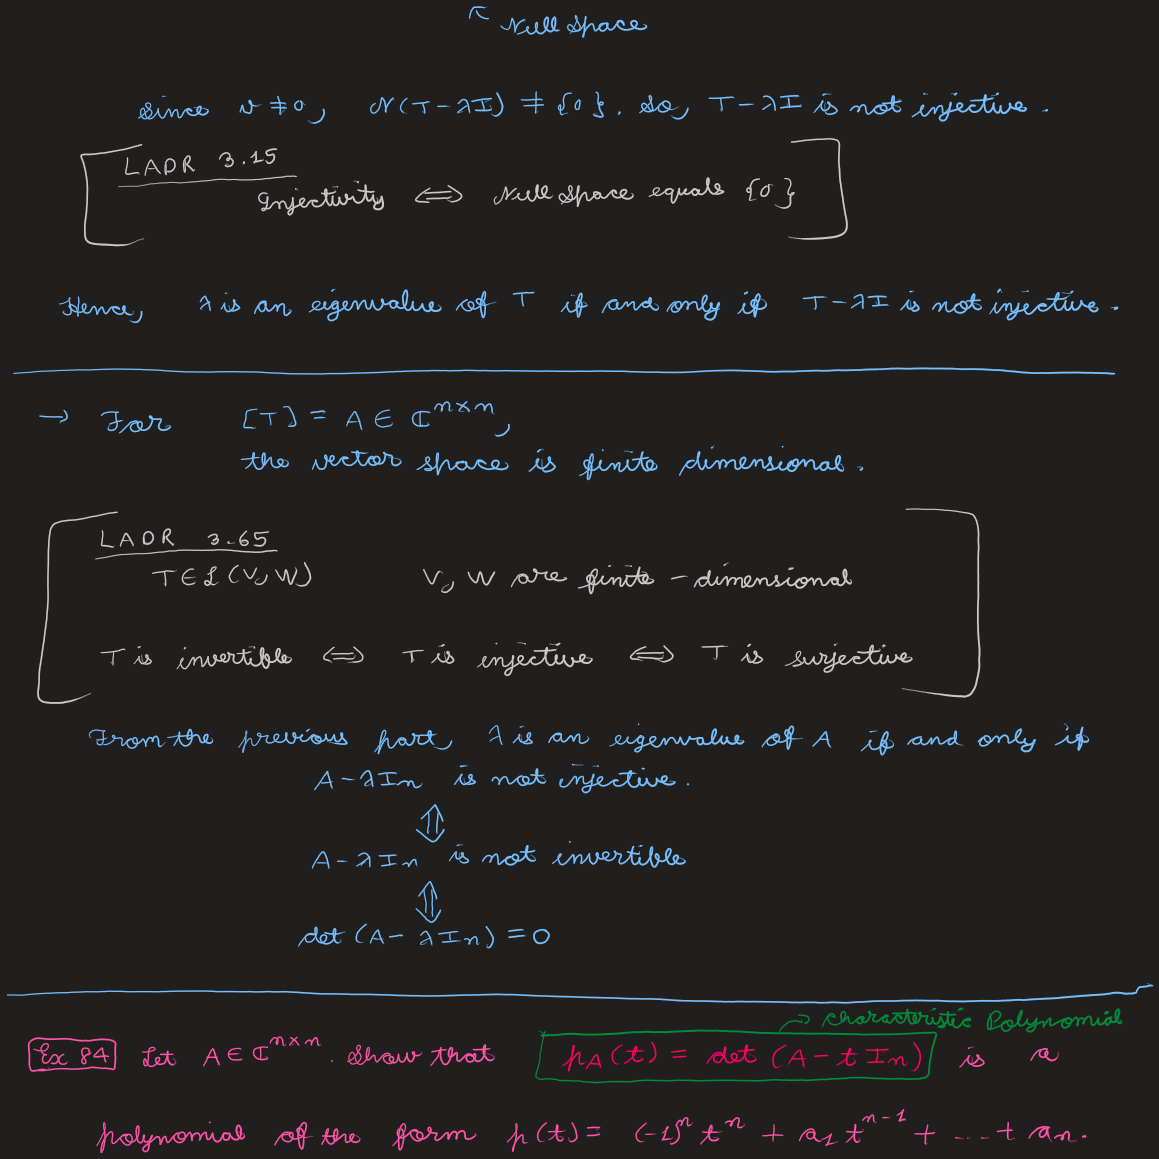 ↖ Null Space
Since v ≠ 0, N(T - λI) ≠ {0}. So, T - λI is not injective.
LADR 3.15
Injectivity ⟺ Null Space equals {0}
Hence, λ is an eigenvalue of T if and only if T - λI is not injective.
→ For [T] = A ∈ ℂ^{n×n},
the vector space is finite dimensional.
LADR 3.65
T ∈ ℒ(V, W) V, W are finite-dimensional
T is invertible ⟺ T is injective ⟺ T is surjective
From the previous part, λ is an eigenvalue of A if and only if
A - λIn is not injective.
⇕
A - λIn is not invertible
⇕
det (A - λIn) = 0
→ Characteristic Polynomial
Ex 84 Let A ∈ ℂ^{n×n}. Show that p_A(t) = det (A - t In) is a
polynomial of the form p(t) = (-1)^n t^n + a_1 t^{n-1} + ... + a_n.